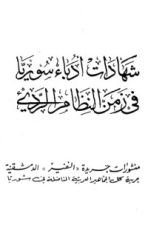 شهادات أدباء سوريا
في زمن النظام الرديء
منشورات جريدة «النفير» الدمشقية
جريدة كل الجماهير العربية المناضلة في سوريا